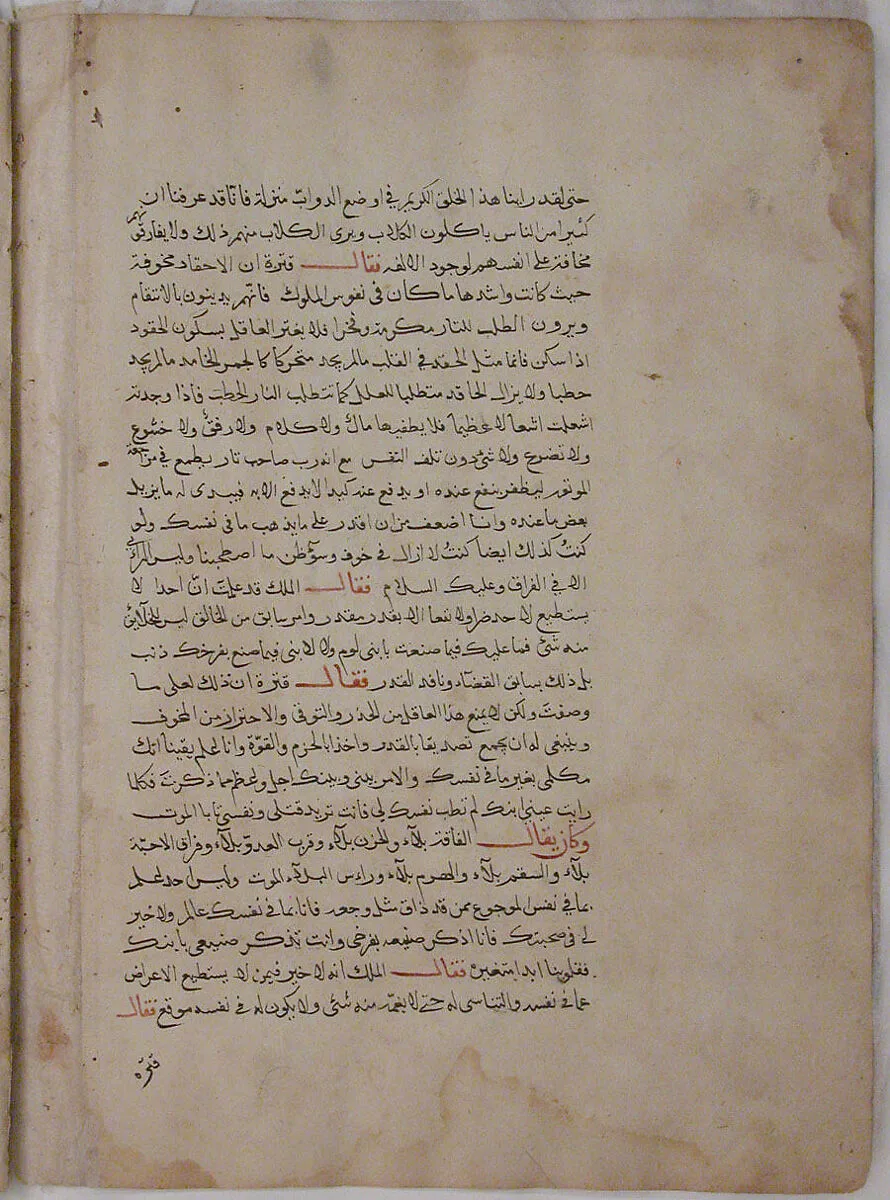 حتى لقد راينا هذا الخلق الكريم في اوضع الدواب منزلة فانا قد عرفنا ان
كثيرا من الناس ياكلون الكلاب ويرى الكلاب منهم ذلك ولا يفارقونهم
مخافة على انفسهم لوجود الالفه فقال قتزة ان الاحقاد مخوفة
حيث كانت واشدها ما كان في نفوس الملوك فانهم يدينون بالانتقام
ويرون الطلب للثار مكرمة وفخرا فلا يغتر العاقل بسكون الحقود
اذا سكن فانما مثل الحقد في القلب مالم يجد متحركا كالجمر الخامد مالم يجد
حطبا ولا يزال الحاقد متطلبا للعلل كما تتطلب النار الحطب فاذا وجدته
اشعلت اشعالا عظيما فلا يطفيها ماء ولا كلام ولا رفق ولا خشوع
ولا تضرع ولا شيء دون تلف النفس مع انه رب صاحب ثار يطمع في مراجعة
الموتور ليظفر بنفع عنده او يدفع عنه كيدا لا يدفع الا به فيبدى له ما يزيل
بعض ما عنده وانا اضعف من ان اقدر على ما يذهب ما في نفسك ولو
كنت كذلك ايضا كنت لا ازال في خوف وسوء ظن ما اصطحبنا وليس الراى
الا في الفراق وعليك السلام فقال الملك قد علمت ان احدا لا
يستطيع لاحد ضرا ولا نفعا الا بقدر مقدر وامر سابق من الخالق ليس للخلائق
منه شيء فما عليك فيما صنعت بابنى لوم ولا لابنى فيما صنع بفرخك ذنب
بل ذلك بسابق القضاء ونافد القدر فقال قتزة ان ذلك لعلى ما
وصفت ولكن لا يمنع هذا العاقل من الحذر والتوقى والاحتراز من المخوف
وينبغى له ان يجمع تصديقا بالقدر واخذا بالحزم والقوة وانا اعلم يقينا انك
مكلمى بغير ما في نفسك والامر بينى وبينك اجل واعظم مما ذكرت فكلما
رايت عينى ابنك لم تطب نفسك لى فانت تريد قتلى ونفسى تابا الموت
وكان يقال الفاقة بلاء والحزن بلاء وقرب العدو بلاء وفراق الاحبة
بلاء والسقم بلاء والهرم بلاء وراس البلاء الموت وليس احد اعلم
بما في نفس الموجوع ممن قد ذاق مثل وجعه فانا بما في نفسك عالم ولا خير
لى في صحبتك فانا اذكر صنيعه بفرخى وانت تذكر صنيعى بابنك
فقلوبنا ابدا متغيرة فقال الملك انه لا خير فيمن لا يستطيع الاعراض
عما في نفسه والتناسى له حتى لا يغمر منه شيء ولا يكون له في نفسه موقع فقال
قتزه